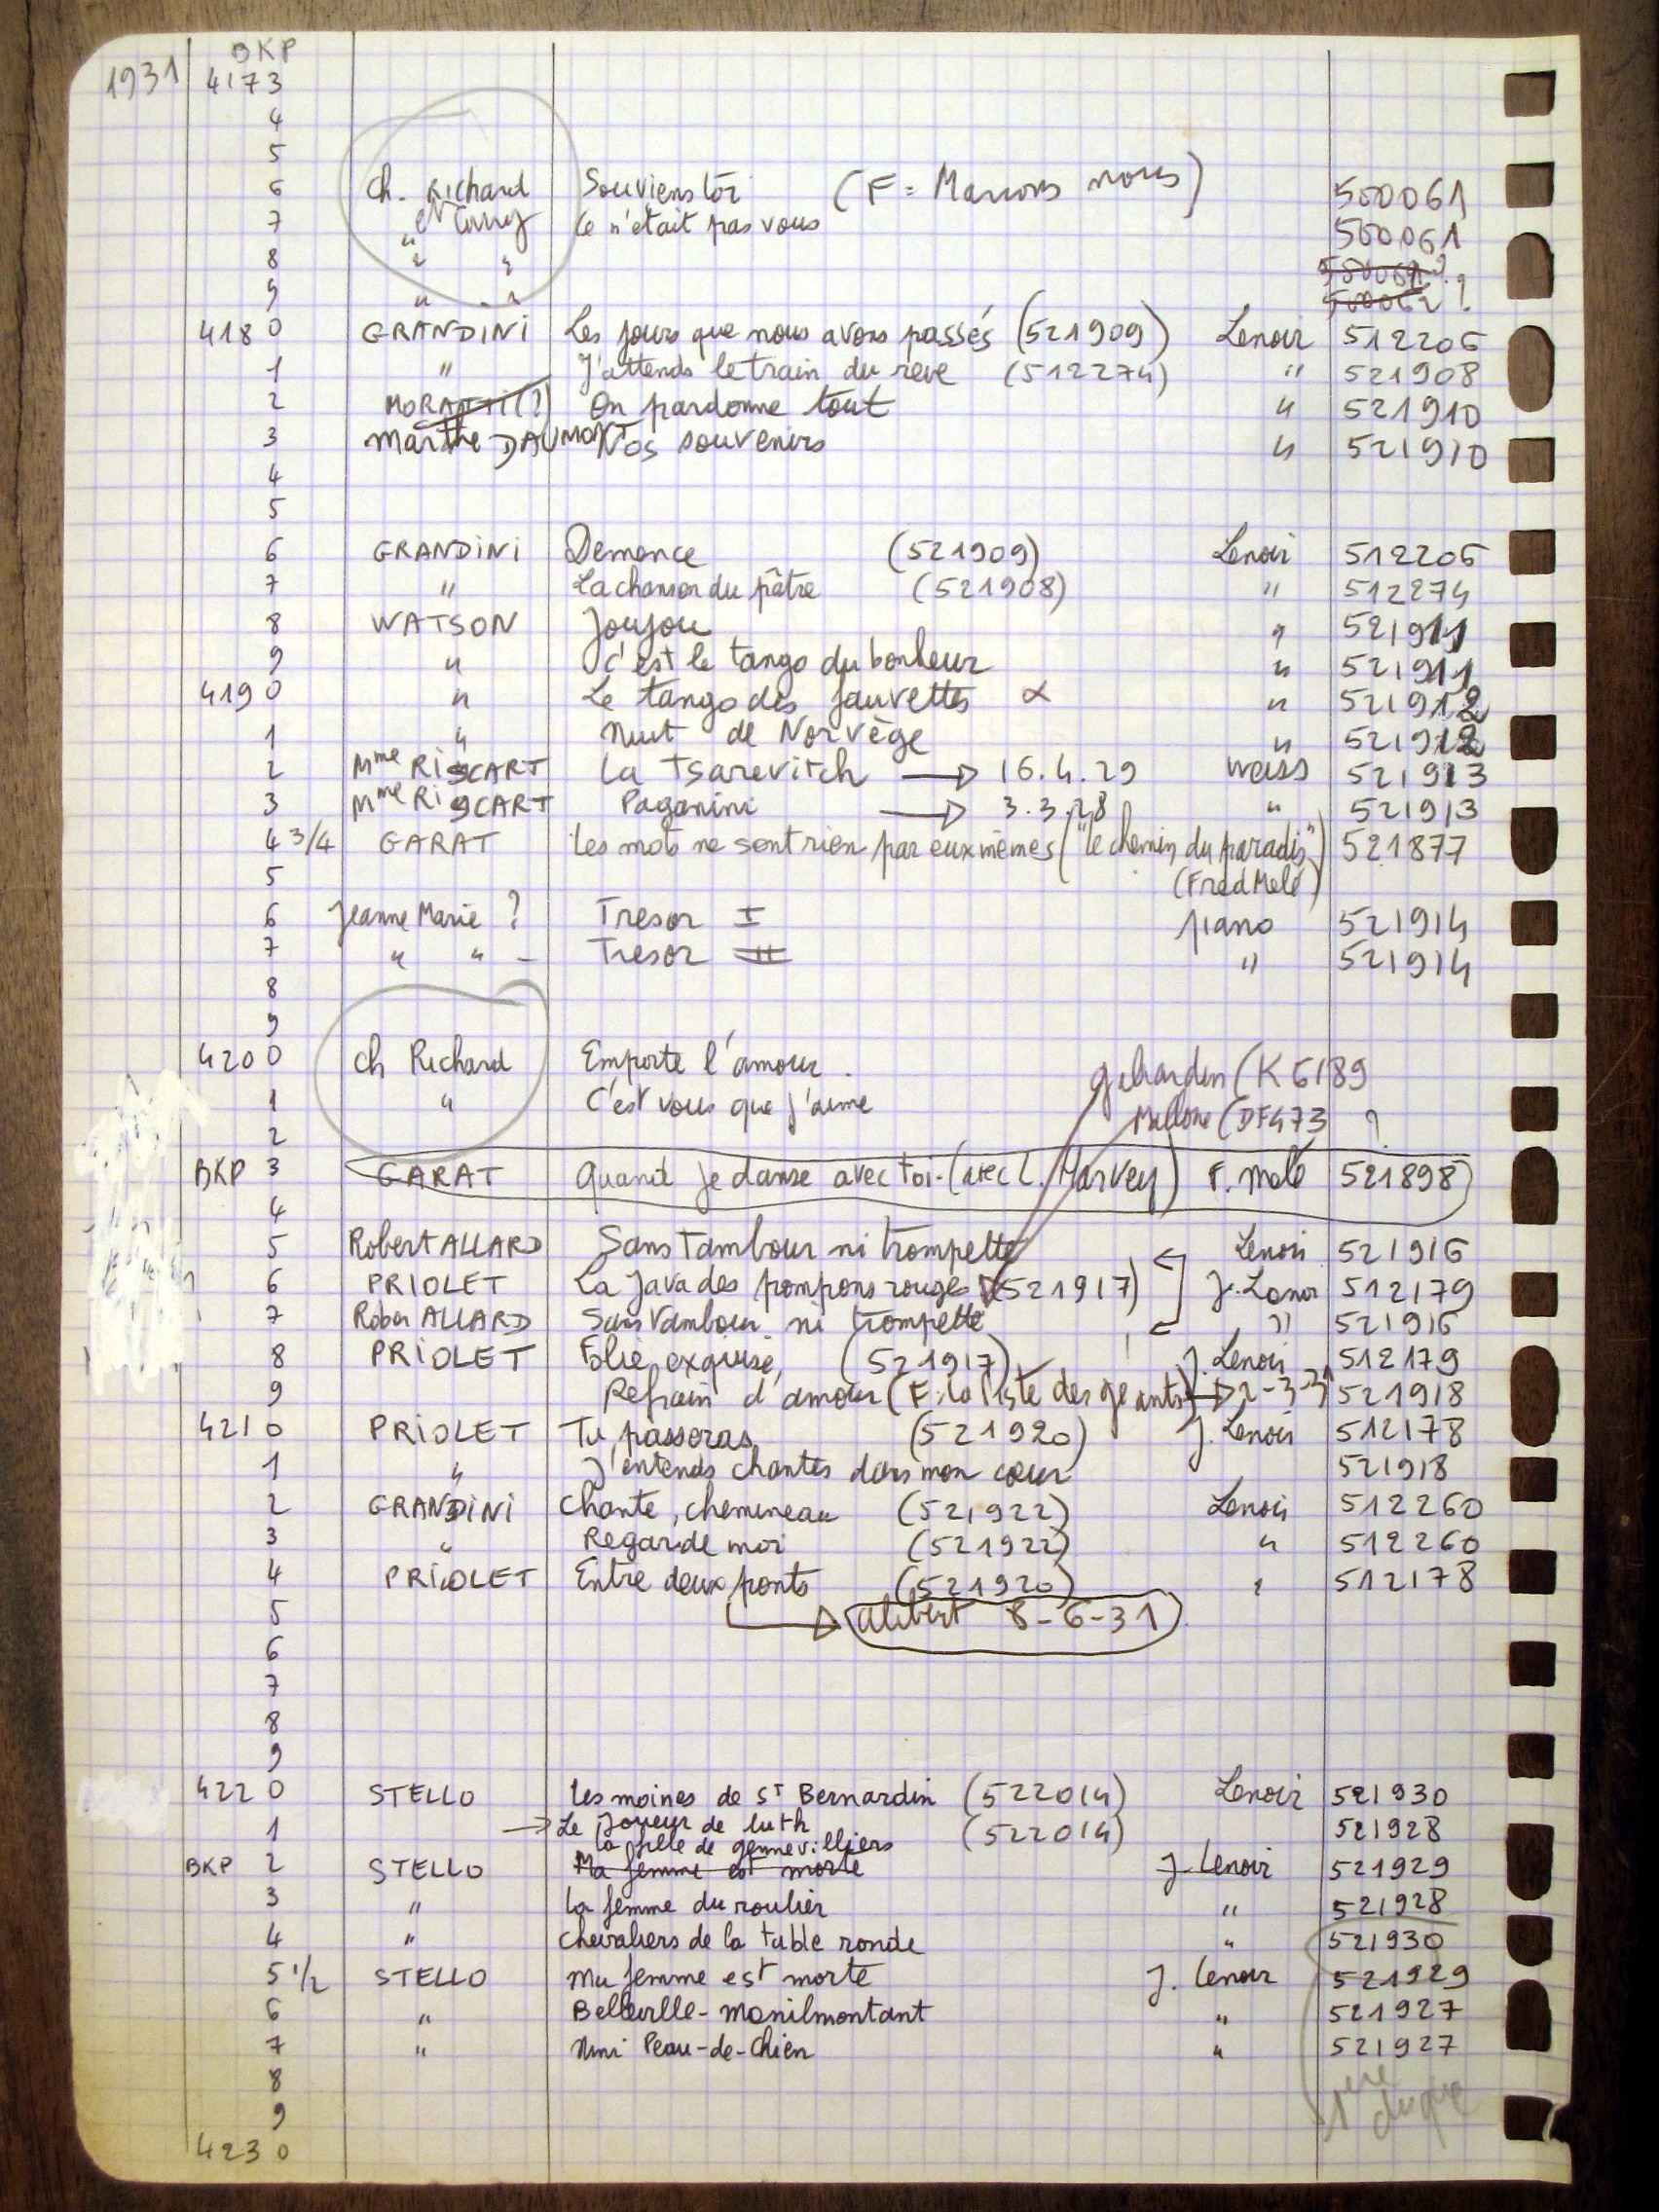 1931 BKP
4173
4
5
6 Ch. Richard Souviens toi (F = Marions nous) 500061
7 " et Ce n'était pas vous 500061
8 " "
9 " "
4180 GRANDINI Les jours que nous avons passés (521909) Lenoir 512206
1 " J'attends le train du rêve (512274) " 521908
2 On pardonne tout " 521910
3 Marthe DAUMONT Nos souvenirs " 521910
4
5
6 GRANDINI Demence (521909) Lenoir 512206
7 " La chanson du pâtre (521908) " 512274
8 WATSON Joujou " 521911
9 " C'est le tango du bonheur " 521911
4190 " Le tango des fauvettes " 521912
1 " Nuit de Norvège " 521912
2 Mme RISCART La Tsarevitch → 16.4.29 Weiss 521913
3 Mme RISCART Paganini → 3.3.28 " 521913
4 3/4 GARAT Les mots ne sont rien par eux mêmes ("le chemin du paradis") 521877
5 (Fred Melé)
6 Jeanne Marie ? Tresor I piano 521914
7 " " - Tresor II " 521914
8
9
4200 Ch Richard Emporte l'amour. (K 6189
1 " C'est vous que j'aime (DF473 ?
2
BKP 3 GARAT Quand je danse avec toi - (avec L. Harvey) F. Melé 521898
4
5 Robert ALLARD Sans Tambour ni trompette Lenoir 521916
6 PRIOLET La Java des pompons rouges (521917) J. Lenoir 512179
7 Rober ALLARD Sans Tambour ni trompette " 521916
8 PRIOLET Folie exquise (521917) J. Lenoir 512179
9 Refrain d'amour (F: la piste des géants) → 2-3-31 521918
4210 PRIOLET Tu passeras (521920) J. Lenoir 512178
1 " J'entends chantes dans mon cœur 521918
2 GRANDINI Chante, chemineau (521922) Lenoir 512260
3 " Regarde moi (521922) " 512260
4 PRIOLET Entre deux ponts (521920) " 512178
5 → alibert 8-6-31
6
7
8
9
4220 STELLO Les moines de St Bernardin (522014) Lenoir 521930
1 → Le Joueur de luth (522014) 521928
la fille de gennevilliers
BKP 2 STELLO Ma femme est morte J. Lenoir 521929
3 " la femme du roulier " 521928
4 " chevaliers de la table ronde " 521930
5 1/2 STELLO Ma femme est morte J. Lenoir 521929
6 " Belleville-Menilmontant " 521927
7 " Nini Peau-de-Chien " 521927
8
9
4230